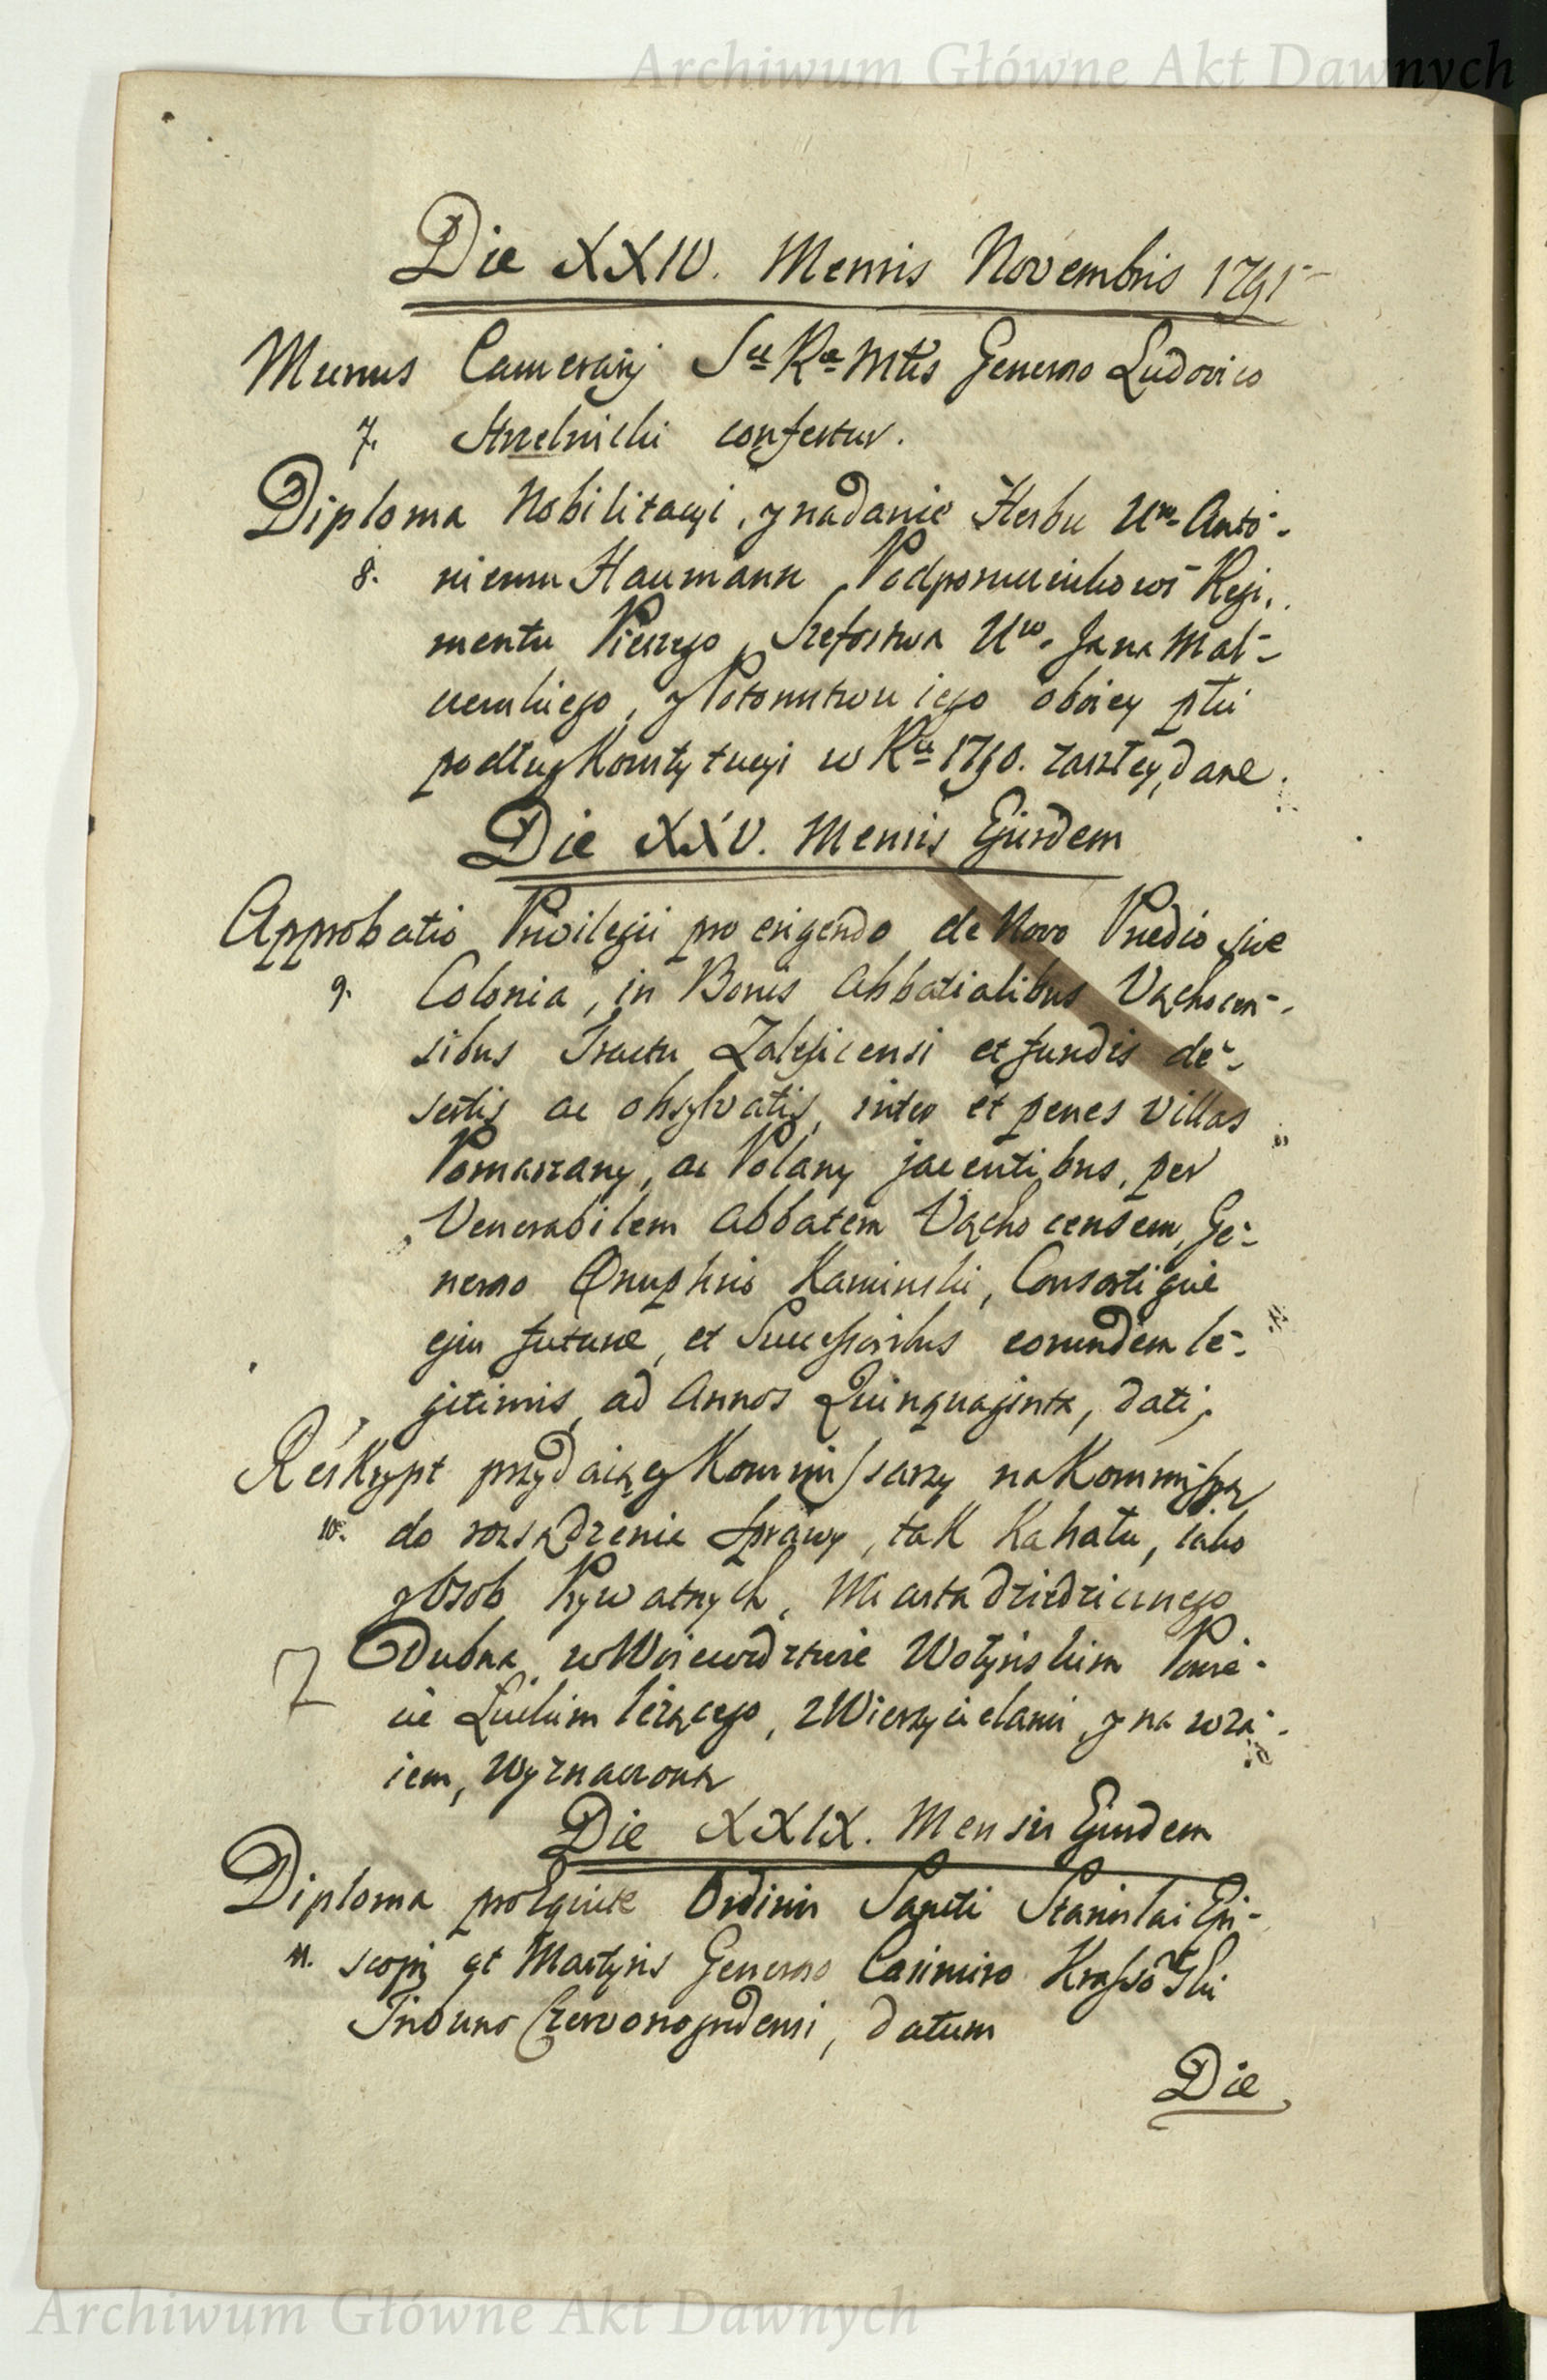 Archiwum Główne Akt Dawnych
Die XXIV. Mensis Novembris 1791
Munus Camerarij Sæ Ræ Mtis Generoso Ludovico
7. Strzelnicki confertur.
Diploma Nobilitacyi, y nadanie Herbu Urn Anto-
8. niemu Haumann Podporucznikowi Regi-
mentu Pieszego Szefostwa Uro Jana Mał-
czewskiego, y Potomstwu iego oboiey płci
podług Konstytucyi w Ru 1790. zaszłey, dane.
Die XXV. Mensis Ejusdem
Approbatio Privilegii pro erigendo de Novo Prædio sive
9. Colonia, in Bonis Abbatialibus Vąchocen-
sibus Tractu Zalesicensi et fundis de-
sertis ac obsylvatis, inter et penes Villas
Pomarzany, ac Polany jacentibus, per
Venerabilem Abbatem Vąchocensem, Ge-
neroso Onuphrio Kaminski, Consortique
ejus futuræ, et Successoribus eorundem le-
gitimis, ad Annos Quinquaginta, dati,
Reskrypt przydaiący Kommissarzy na Kommissyą
10. do rozsądzenia Sprawy, tak Kahału, iako
y Osob Prywatnych, Miasta dziedzicznego
Dubna w Woiewodztwie Wołyńskim Powie-
cie Łuckim leżącego, z Wierzycielami, y na wza-
iem, wyznaczona
Die XXIX. Mensis Ejusdem
Diploma pro Equite Ordinis Sancti Stanislai Epi-
11. scopi et Martyris Generoso Casimiro
Tribuno Czervonogrodensi, datum
Die
Archiwum Główne Akt Dawnych